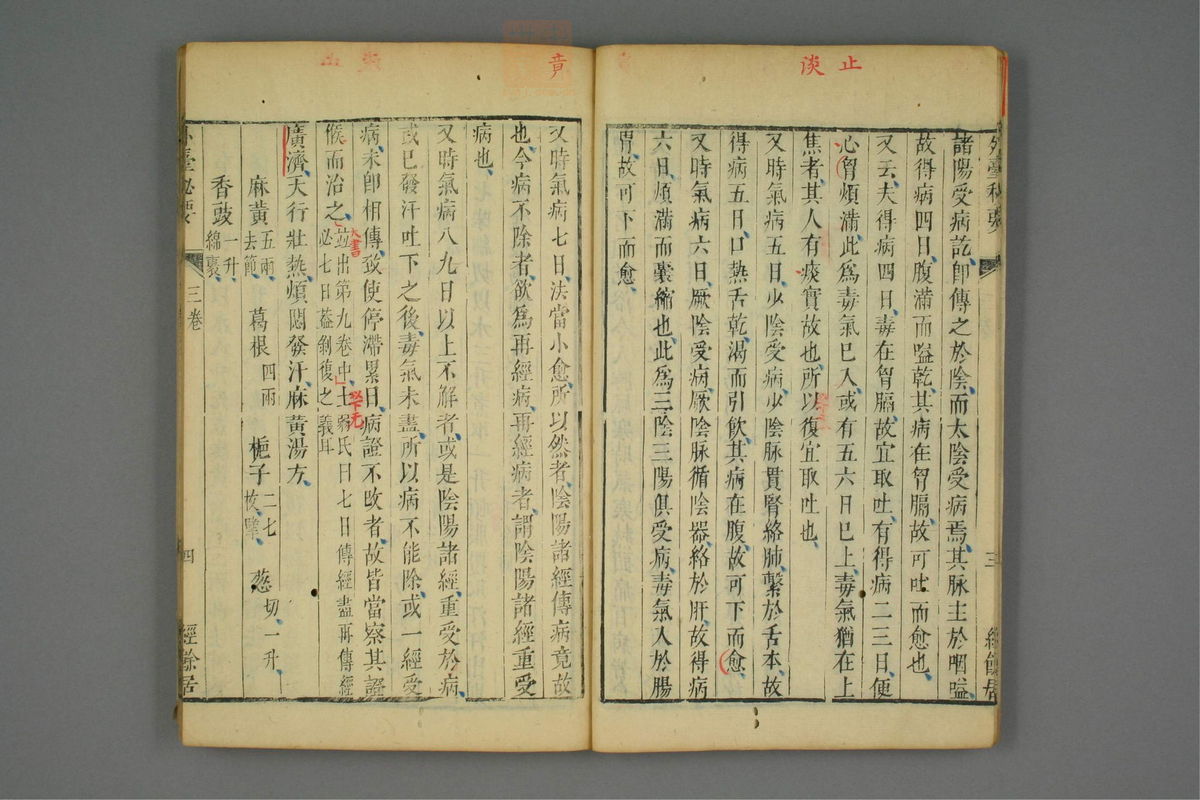 止
淡
外臺秘要 三 經餘居
諸陽受病訖卽傳之於陰而太陰受病焉其脉主於咽嗌
故得病四日腹滿而嗌乾其病在胷膈故可吐而愈也
又云夫得病四日毒在胷膈故宜取吐有得病二三日便
心胷煩滿此爲毒氣已入或有五六日已上毒氣猶在上
焦者其人有痰實故也所以復宜取吐也
又時氣病五日少陰受病少陰脉貫腎絡肺繫於舌本故
得病五日口熱舌乾渴而引飲其病在腹故可下而愈
又時氣病六日厥陰受病厥陰脉循陰器絡於肝故得病
六日煩滿而囊縮也此爲三陰三陽俱受病毒氣入於腸
胃故可下而愈
竟
又時氣病七日法當小愈所以然者陰陽諸經傳病竟故
也今病不除者欲爲再經病再經病者謂陰陽諸經重受
病也
又時氣病八九日以上不解者或是陰陽諸經重受於病
或已發汗吐下之後毒氣未盡所以病不能除或一經受
病未卽相傳致使停滯累日病證不改者故皆當察其證
候而治之
大書
竝出第九卷中士弱氏曰七日傳經盡再傳經
以下无
必七日葢剝復之義耳
廣濟天行壯熱煩悶發汗麻黃湯方
麻黃五兩去節 葛根四兩 梔子二七枚擘 葱切一升
香豉一升綿裹
外臺秘要 三卷 四 經餘居